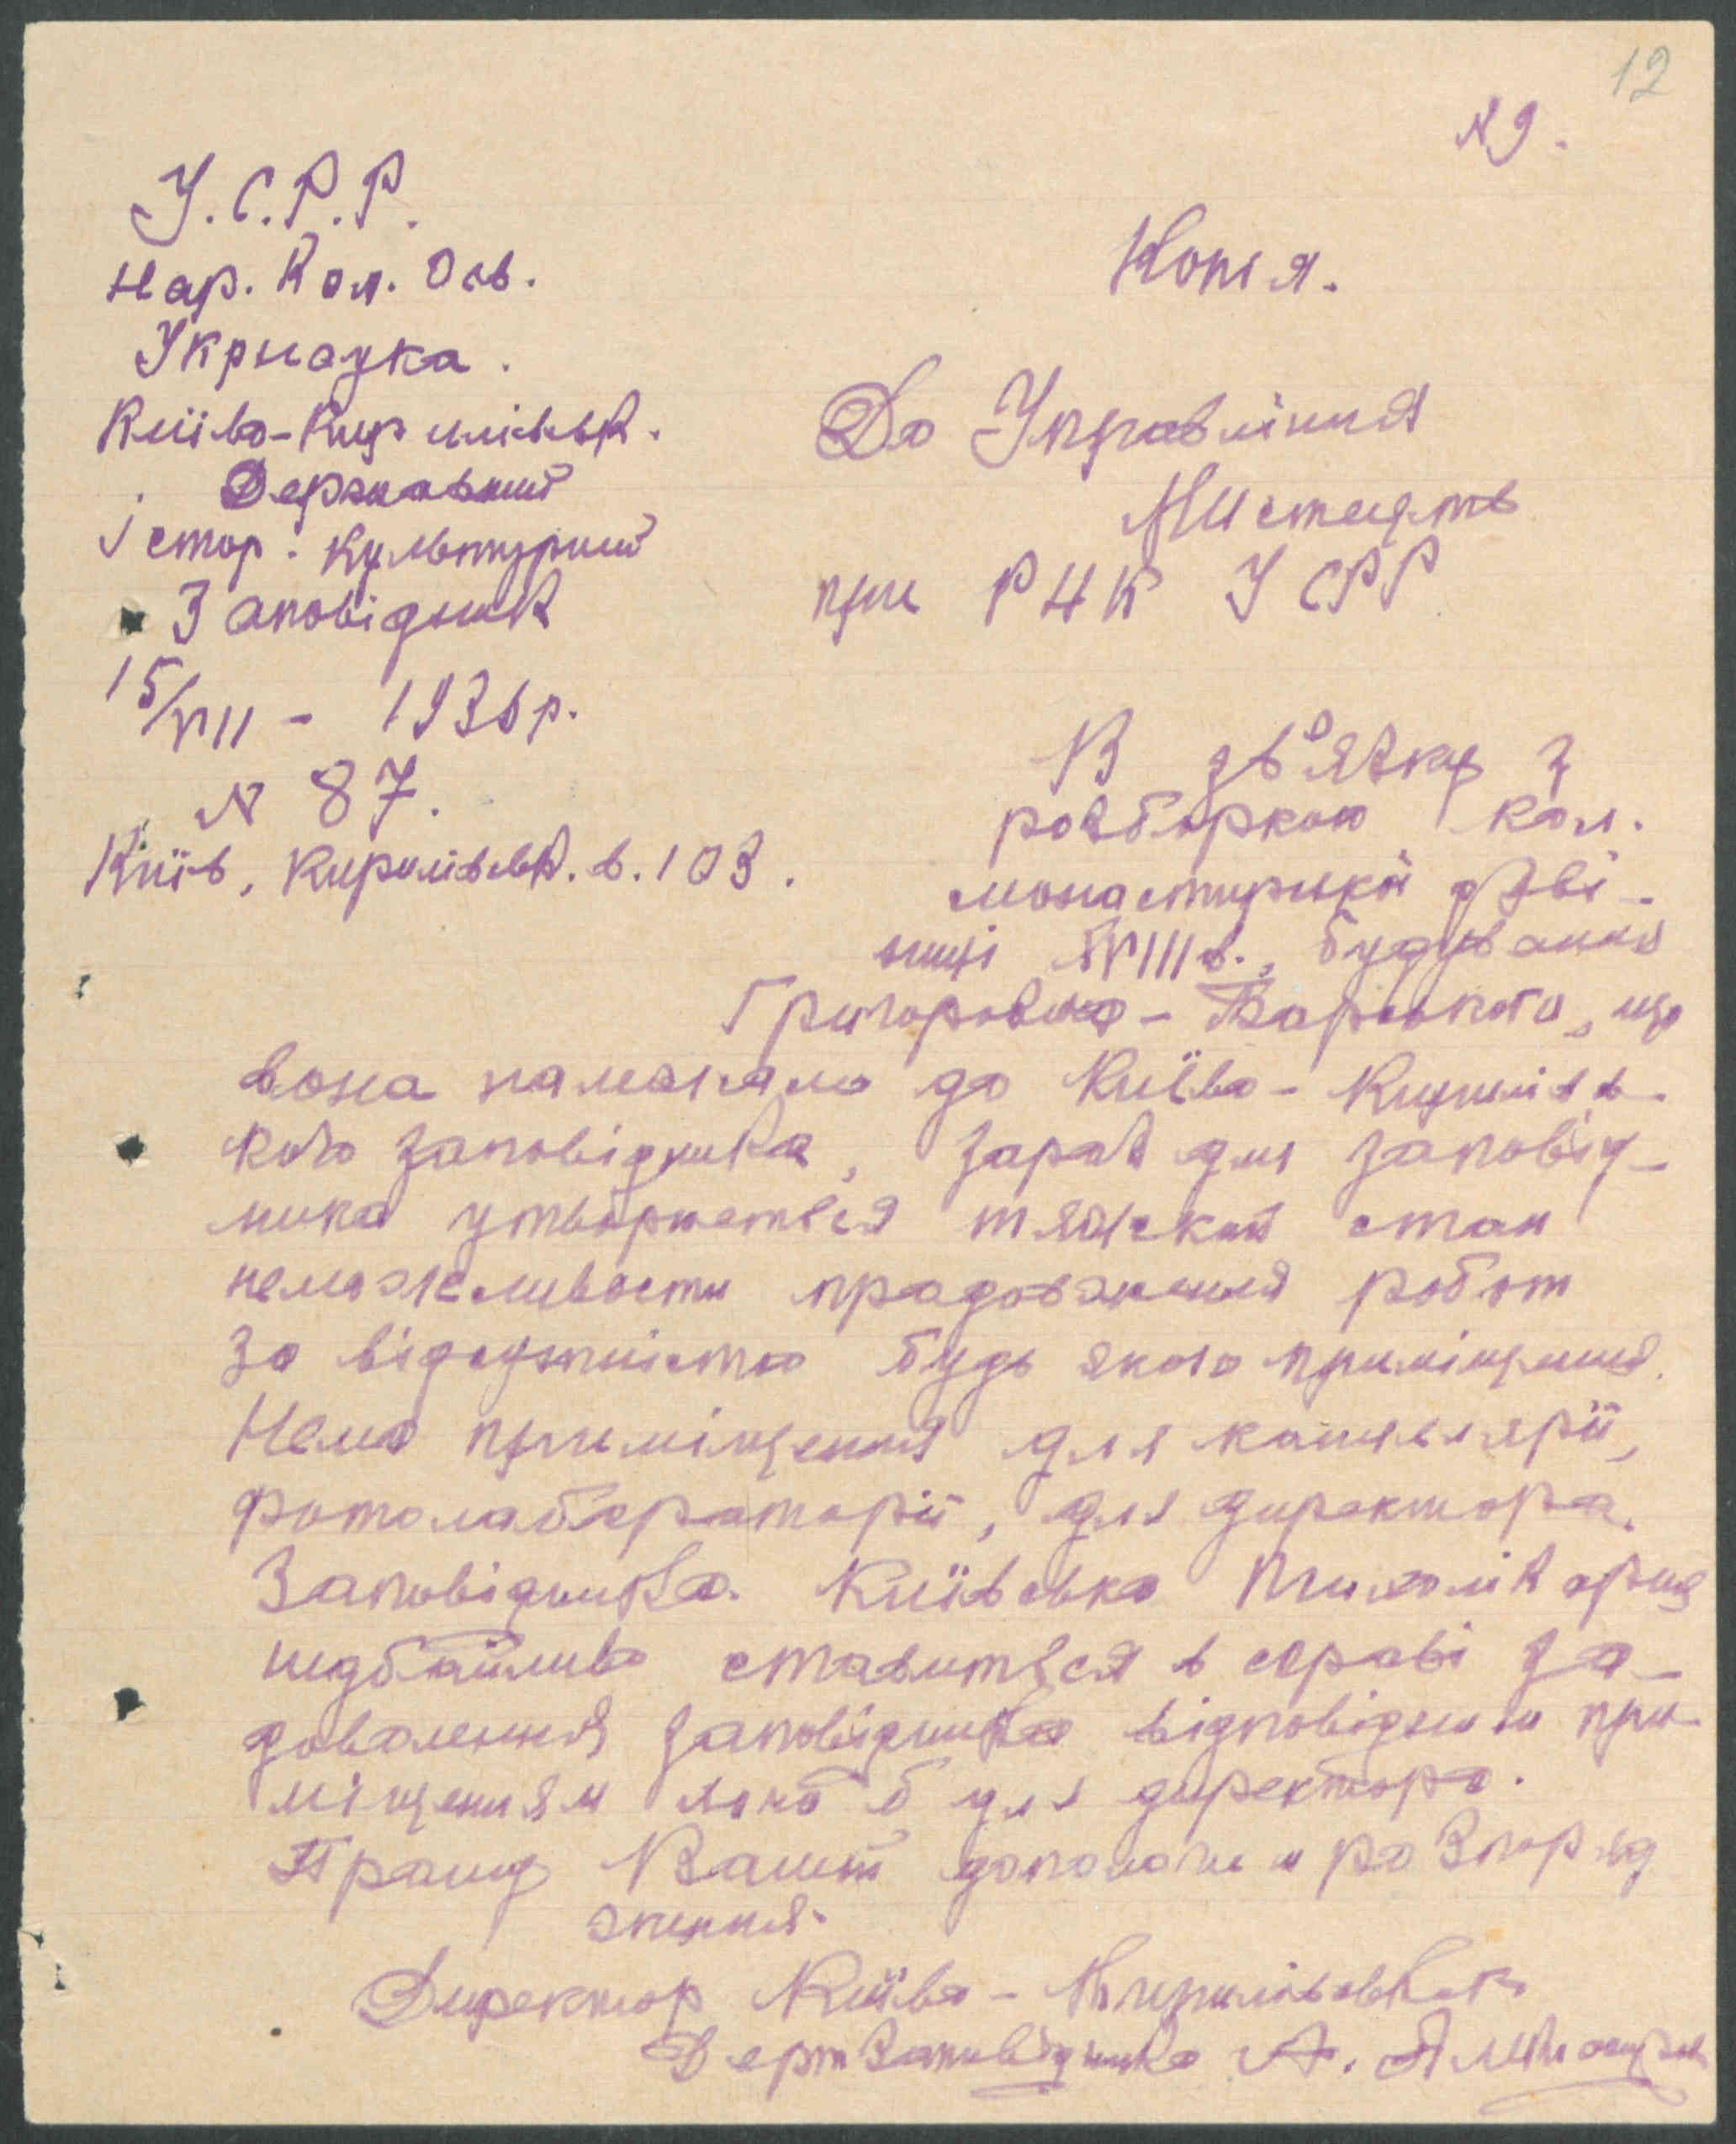 12
N 9.
У.С.Р.Р.
Нар. Ком. Осв.
Укрнаука.
Київо-Кирилівськ.
Державний
Істор. культурний
Заповідник
15/VII - 1936 р.
N 87.
Київ, Кирилівськ. в. 103.
Копія.
До Управління
Мистецтв
при РНК УСРР
В зв'язку з
розборкою кол.
монастирської дзві-
ниці XVIII в., будування
Григоровича-Барського, що
вона належала до Київо-Кирилівсь-
кого заповідника, зараз для заповід-
ника утворюється тяжкий стан
неможливости продовження робот
за відсутністю будь якого приміщення.
Нема приміщення для канцелярії,
фотолабораторії, для директора
Заповідника. Київська Міськрада
недбайливо ставиться в справі за-
доволення заповідника відповідним при-
міщенням хоча б для директора.
Прошу Вашої допомоги и розпоряд
ження.
Директор Київо-Кирилівського
Держ Заповідника А.